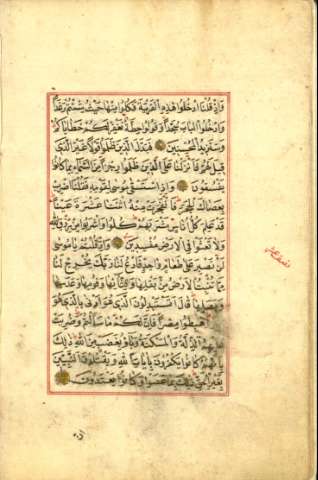 وَإِذْ قُلْنَا ادْخُلُوا هٰذِهِ الْقَرْيَةَ فَكُلُوا مِنْهَا حَيْثُ شِئْتُمْ رَغَدًا
وَادْخُلُوا الْبَابَ سُجَّدًا وَقُولُوا حِطَّةٌ نَغْفِرْ لَكُمْ خَطَايَاكُمْ
وَسَنَزِيدُ الْمُحْسِنِينَ فَبَدَّلَ الَّذِينَ ظَلَمُوا قَوْلًا غَيْرَ الَّذِي
قِيلَ لَهُمْ فَأَنْزَلْنَا عَلَى الَّذِينَ ظَلَمُوا رِجْزًا مِنَ السَّمَاءِ بِمَا كَانُوا
يَفْسُقُونَ وَإِذِ اسْتَسْقَى مُوسَى لِقَوْمِهِ فَقُلْنَا اضْرِبْ
بِعَصَاكَ الْحَجَرَ فَانْفَجَرَتْ مِنْهُ اثْنَتَا عَشْرَةَ عَيْنًا
قَدْ عَلِمَ كُلُّ أُنَاسٍ مَشْرَبَهُمْ كُلُوا وَاشْرَبُوا مِنْ رِزْقِ اللهِ
وَلَا تَعْثَوْا فِي الْأَرْضِ مُفْسِدِينَ وَإِذْ قُلْتُمْ يَا مُوسَى
لَنْ نَصْبِرَ عَلَى طَعَامٍ وَاحِدٍ فَادْعُ لَنَا رَبَّكَ يُخْرِجْ لَنَا
مِمَّا تُنْبِتُ الْأَرْضُ مِنْ بَقْلِهَا وَقِثَّائِهَا وَفُومِهَا وَعَدَسِهَا
وَبَصَلِهَا قَالَ أَتَسْتَبْدِلُونَ الَّذِي هُوَ أَدْنَى بِالَّذِي هُوَ
خَيْرٌ اهْبِطُوا مِصْرًا فَإِنَّ لَكُمْ مَا سَأَلْتُمْ وَضُرِبَتْ
عَلَيْهِمُ الذِّلَّةُ وَالْمَسْكَنَةُ وَبَاءُوا بِغَضَبٍ مِنَ اللهِ ذٰلِكَ
بِأَنَّهُمْ كَانُوا يَكْفُرُونَ بِآيَاتِ اللهِ وَيَقْتُلُونَ النَّبِيِّينَ
بِغَيْرِ الْحَقِّ ذٰلِكَ بِمَا عَصَوْا وَكَانُوا يَعْتَدُونَ